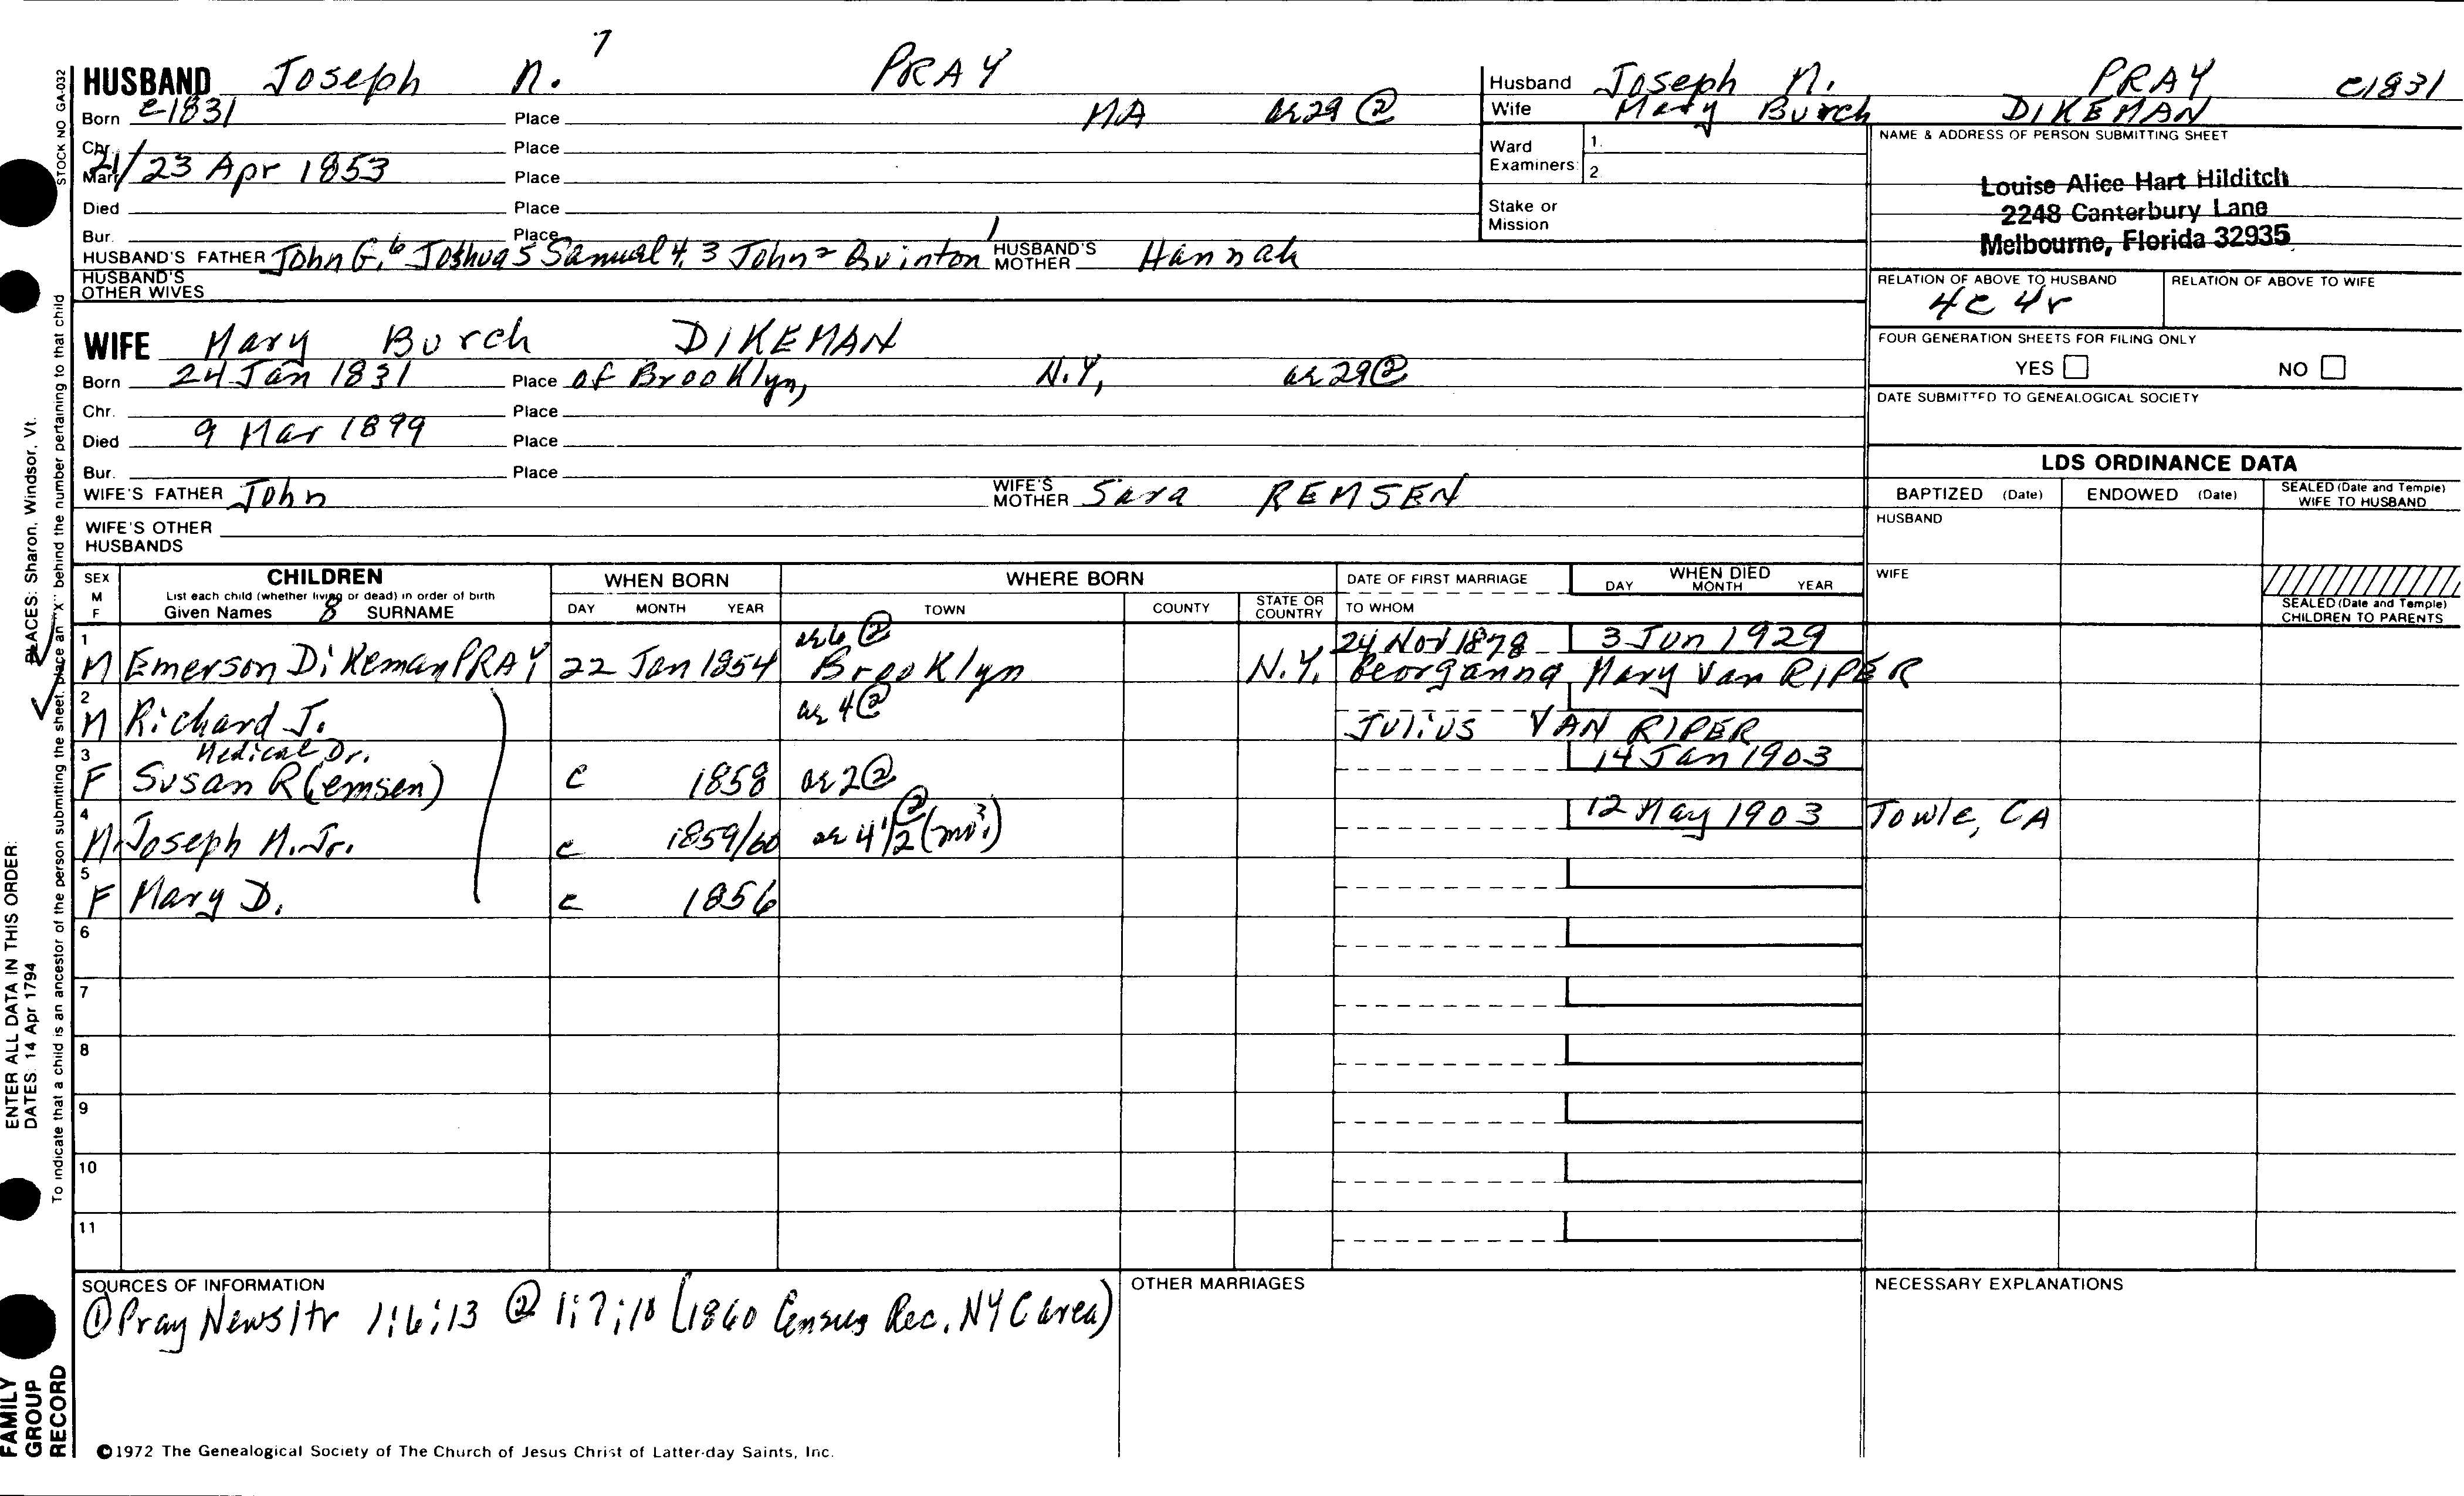 7
HUSBAND Joseph N. PRAY
Born c1831 Place MA ae 29 ②
Chr. Place
Marr. 21/23 Apr 1853 Place
Died Place
Bur. Place
HUSBAND'S FATHER John G.6 Joshua5 Samuel4, 3 John2 Quinton1 HUSBAND'S MOTHER Hannah
HUSBAND'S OTHER WIVES
WIFE Mary Burch DIKEMAN
Born 24 Jan 1831 Place of Brooklyn, N.Y, ae 29②
Chr. Place
Died 9 Mar 1899 Place
Bur. Place
WIFE'S FATHER John WIFE'S MOTHER Sara REMSEN
WIFE'S OTHER HUSBANDS
Husband Joseph N. PRAY c1831
Wife Mary Burch DIKEMAN
Ward Examiners: 1. 2.
Stake or Mission
NAME & ADDRESS OF PERSON SUBMITTING SHEET
Louise Alice Hart Hilditch
2248 Canterbury Lane
Melbourne, Florida 32935
RELATION OF ABOVE TO HUSBAND RELATION OF ABOVE TO WIFE
4c 4r
FOUR GENERATION SHEETS FOR FILING ONLY
YES NO
DATE SUBMITTED TO GENEALOGICAL SOCIETY
LDS ORDINANCE DATA
BAPTIZED (Date) ENDOWED (Date) SEALED (Date and Temple) WIFE TO HUSBAND
HUSBAND
WIFE
SEALED (Date and Temple) CHILDREN TO PARENTS
SEX M F
CHILDREN
List each child (whether living or dead) in order of birth
Given Names 8 SURNAME
WHEN BORN
DAY MONTH YEAR
WHERE BORN
TOWN COUNTY STATE OR COUNTRY
DATE OF FIRST MARRIAGE
TO WHOM
WHEN DIED
DAY MONTH YEAR
1 ae 6 ② 24 Nov 1878 3 Jun 1929
M Emerson Dikeman PRAY 22 Jan 1854 Brooklyn N.Y. Georganna Mary Van RIPER
2 ae 4②
M Richard J. Julius VAN RIPER
3 Medical Dr. 14 Jan 1903
F Susan R(emsen) c 1858 ae 2②
4 12 May 1903 Towle, CA
M Joseph N. Jr. c 1859/60 ae 4 1/2 ② (mo?)
5
F Mary D. c 1856
6
7
8
9
10
11
SOURCES OF INFORMATION
① Pray Newsltr 1:6:13 ② 1:7:18 (1860 Census Rec. NYC area)
OTHER MARRIAGES
NECESSARY EXPLANATIONS
©1972 The Genealogical Society of The Church of Jesus Christ of Latter-day Saints, Inc.
STOCK NO GA-032
To indicate that a child is an ancestor of the person submitting the sheet, place an "X" behind the number pertaining to that child
PLACES: Sharon, Windsor, Vt.
ENTER ALL DATA IN THIS ORDER:
DATES: 14 Apr 1794
FAMILY
GROUP
RECORD